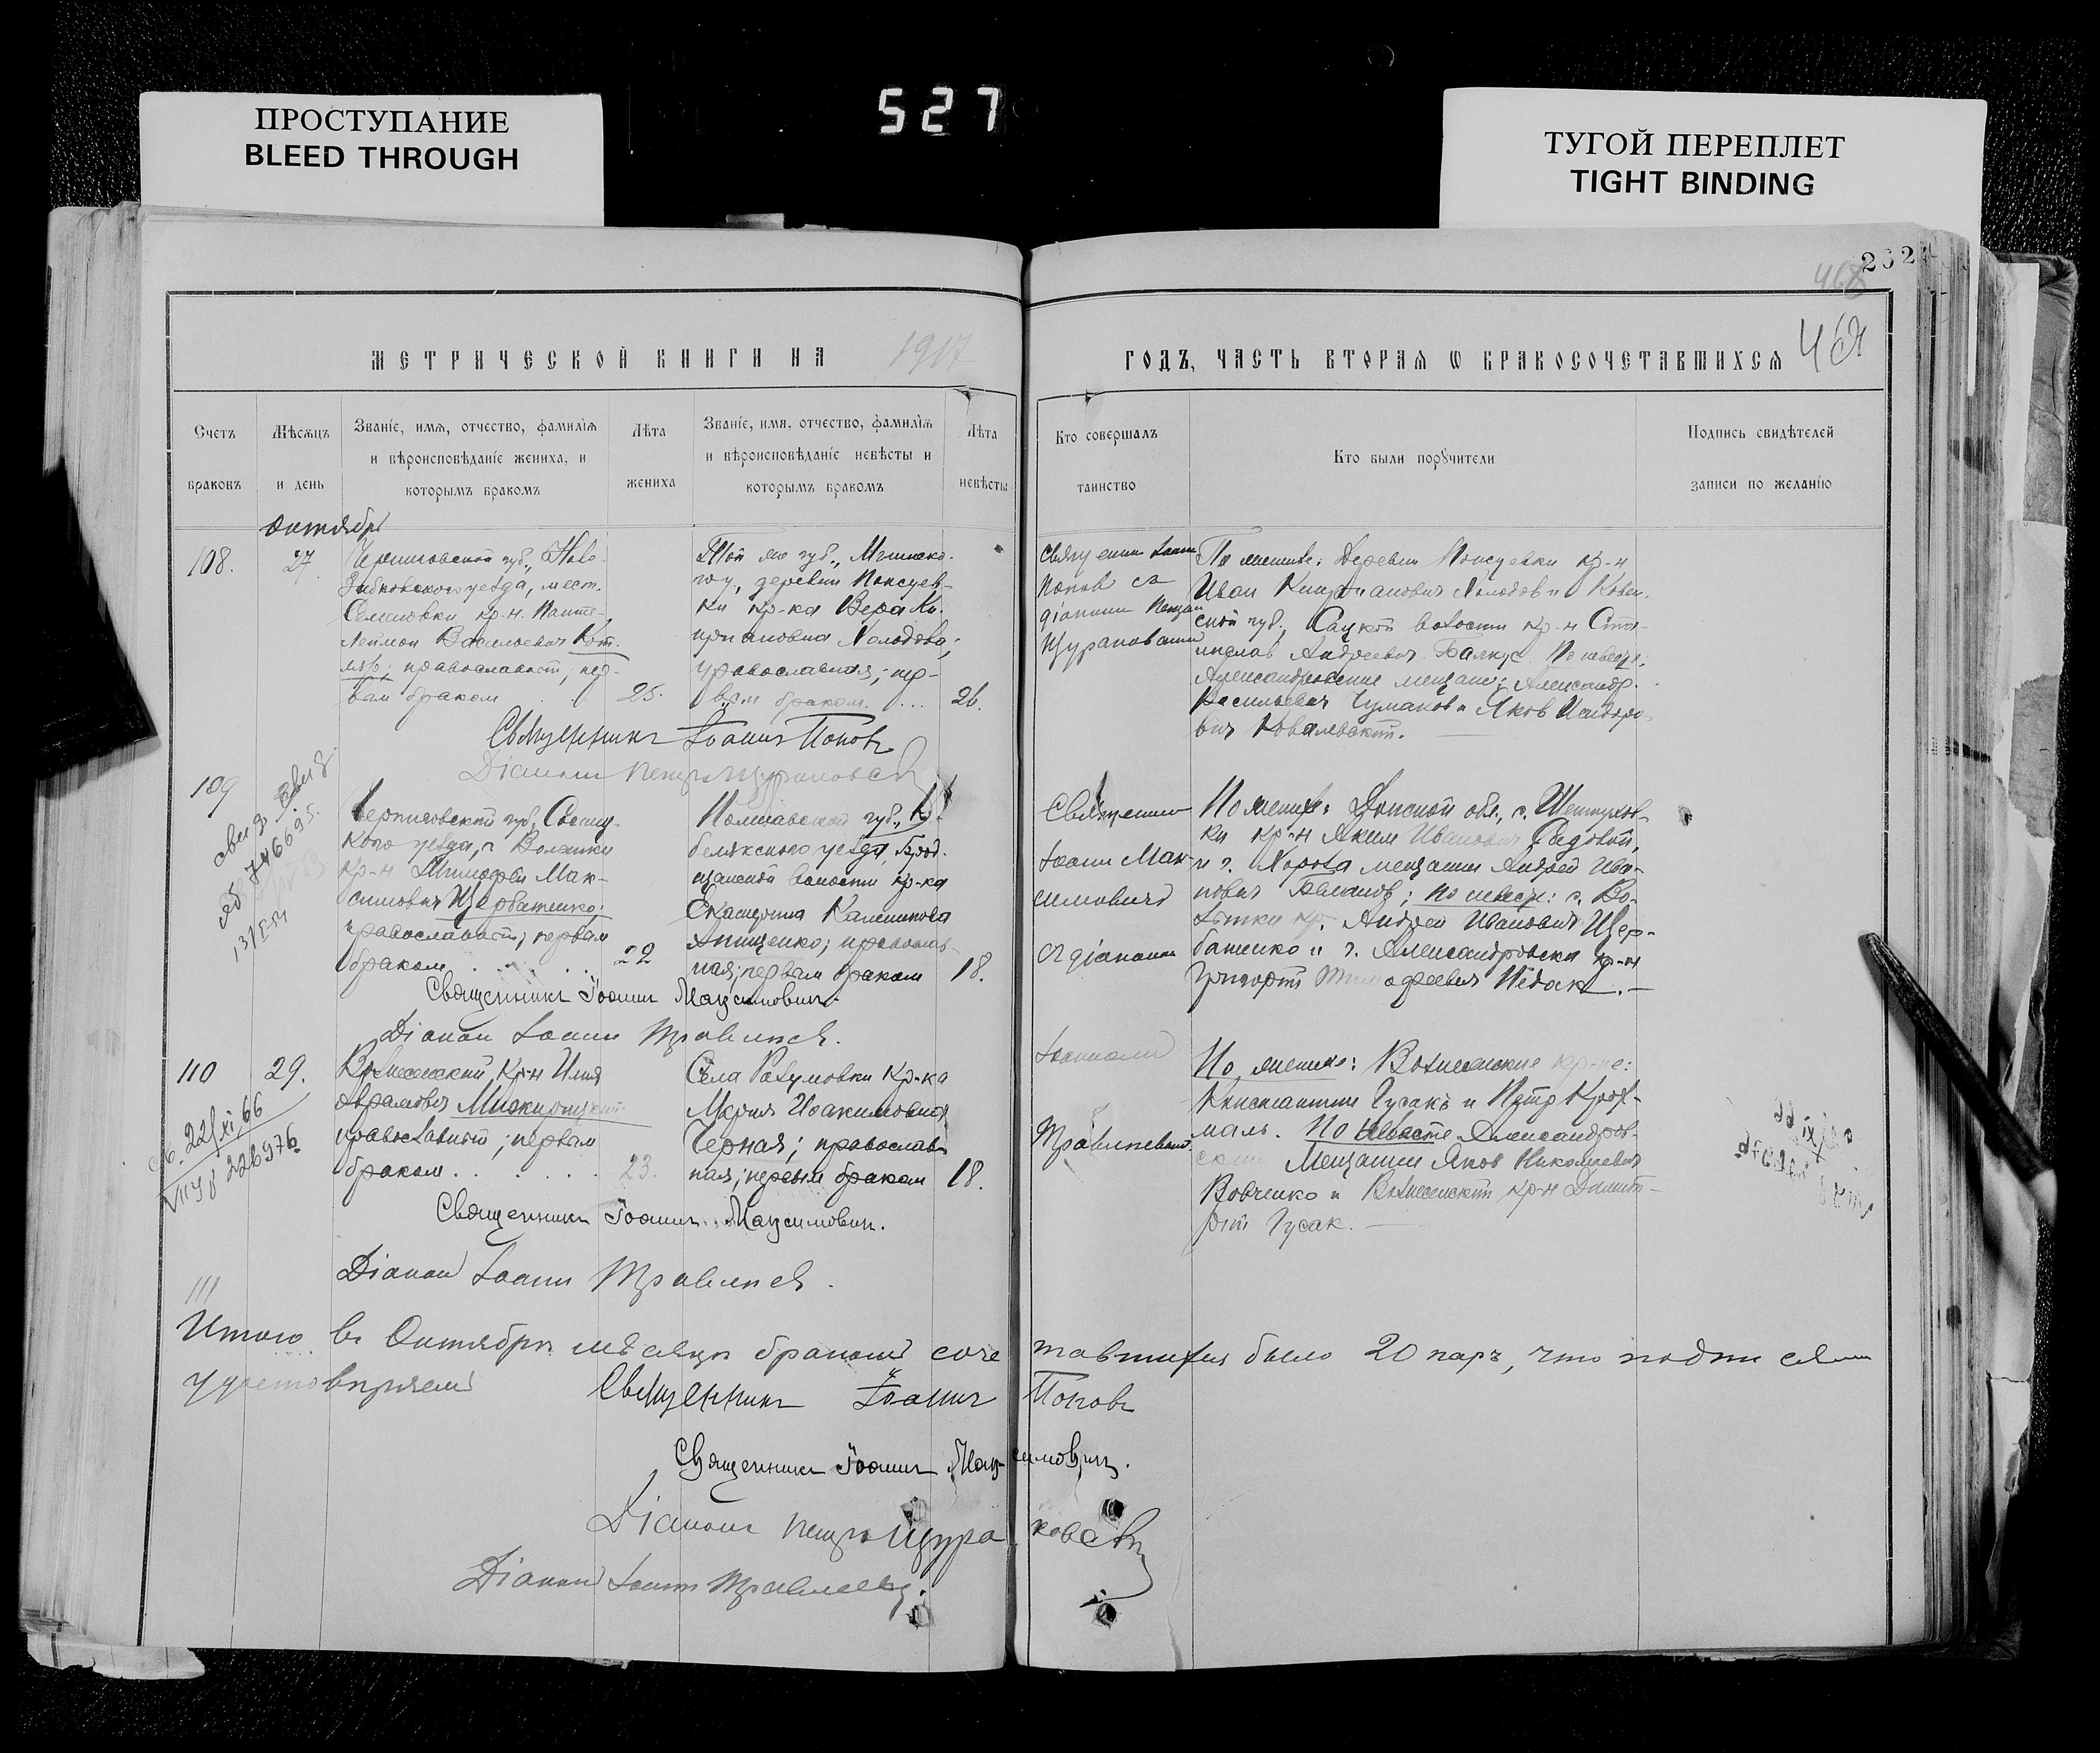 ПРОСТУПАНИЕ
BLEED THROUGH
527
ТУГОЙ ПЕРЕПЛЕТ
TIGHT BINDING
262
468
МЕТРИЧЕСКОЙ КНИГИ НА 1917
ГОДЪ, ЧАСТЬ ВТОРАЯ Ѡ БРАКОСОЧЕТАВШИХСЯ
Счетъ
браковъ
Мѣсяцъ
и день
Званіе, имя, отчество, фамилія
и вѣроисповѣданіе жениха, и
которымъ бракомъ
Лѣта
жениха
Званіе, имя, отчество, фамилія
и вѣроисповѣданіе невѣсты и
которымъ бракомъ
Лѣта
невѣсты
Кто совершалъ
таинство
Кто были порꙋчители
Подпись свидѣтелей
записи по желанію
Октября
108.
27
Черниговской губ., Ново-
зыбковского уезда, мест.
Семеновки кр-н. Панте-
леймон Васильевич Кот-
ляр; православный; пер-
вым браком
25.
Той же губ.,
деревни
кр-ка Вера Ки-
приановна Холодова;
православная; пер-
вым браком
26.
Священник Іоанн
Попов с
діаконом Петром
По женихе: Деревни кр-н
Иван Киприанович Холодов и Ковен-
ской губ., волости кр-н
Андреевич. По невесте:
Александровские мещане: Александр
Васильевич Чуманов и Яков
вич Ковалевский.
Священникъ Іоаннъ Поповъ
Діаконъ Петръ
109
746695
Черниговской губ., Сосниц-
кого уезда, с. Волынки
кр-н Тимофей Мак-
симович Щербатенко;
православный; первым
браком
22
Полтавской губ., Ко-
белякского уезда, Брод-
щанской волости кр-ка
Екатерина Калиниковна
Онищенко; православ-
ная; первым браком
18.
Священник
Іоанн Мак-
симович
с діаконом
По женихе: Донской обл., с.
кр-н Аким Иванович Садовый,
и г. мещанин Андрей Ива-
нович; по невесте: с. Во-
лынки кр. Андрей Иванович Щер-
батенко и г. Александровска кр-н
Григорий Тимофеевич.
Священникъ Іоаннъ Максимовичъ.
Діакон Іоанн
110
29.
22/XI 66
226976
Вознесенский кр-н Илия
Аврамович
православный; первым
браком
23.
Села Разумовки кр-ка
Мария Иоакимовна
Черная; православ-
ная; первым браком
18.
Іоанном
По жениху: Вознесенские кр-не:
Константин Гусакъ и Петр Крох-
маль. По невесте Александров-
ский Мещанин Яков Николаевич
Вовченко и Вознесенский кр-н Дмит-
рий Гусак.
Священникъ Іоаннъ Максимовичъ.
Діакон Іоанн
111
Итого въ Октябрѣ мѣсяцѣ браком соче тавшихся было 20 паръ, что подписями
удостовѣряем Священникъ Іоаннъ Поповъ
Священникъ Іоаннъ Максимовичъ.
Діаконъ Петръ
Діакон Іоанн